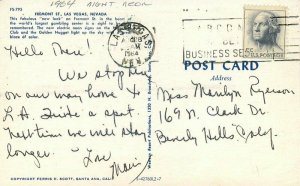 1964 NIGHT NEON
FS-795 FREMONT ST., LAS VEGAS, NEVADA
This fabulous "new look" on Fremont St. in the heart of the
world's largest gambling center is a sight to be
remembered. The new electric neon signs on the
Club and the Golden Nugget light up the sky with
blaze of color.
LAS VEGAS
AM
1964
NEV.
BUSINESS
U.S. POSTAGE
Hello There!
We stopped
on our way home to
L.A. Quite a spot.
Next time we will stay
longer. Love
POST CARD
Address
Miss Marilyn Ryerson
169 N. Clark Dr.
Beverly Hills, Calif
COPYRIGHT FERRIS H. SCOTT, SANTA ANA, CAL.
S-42760L2-7